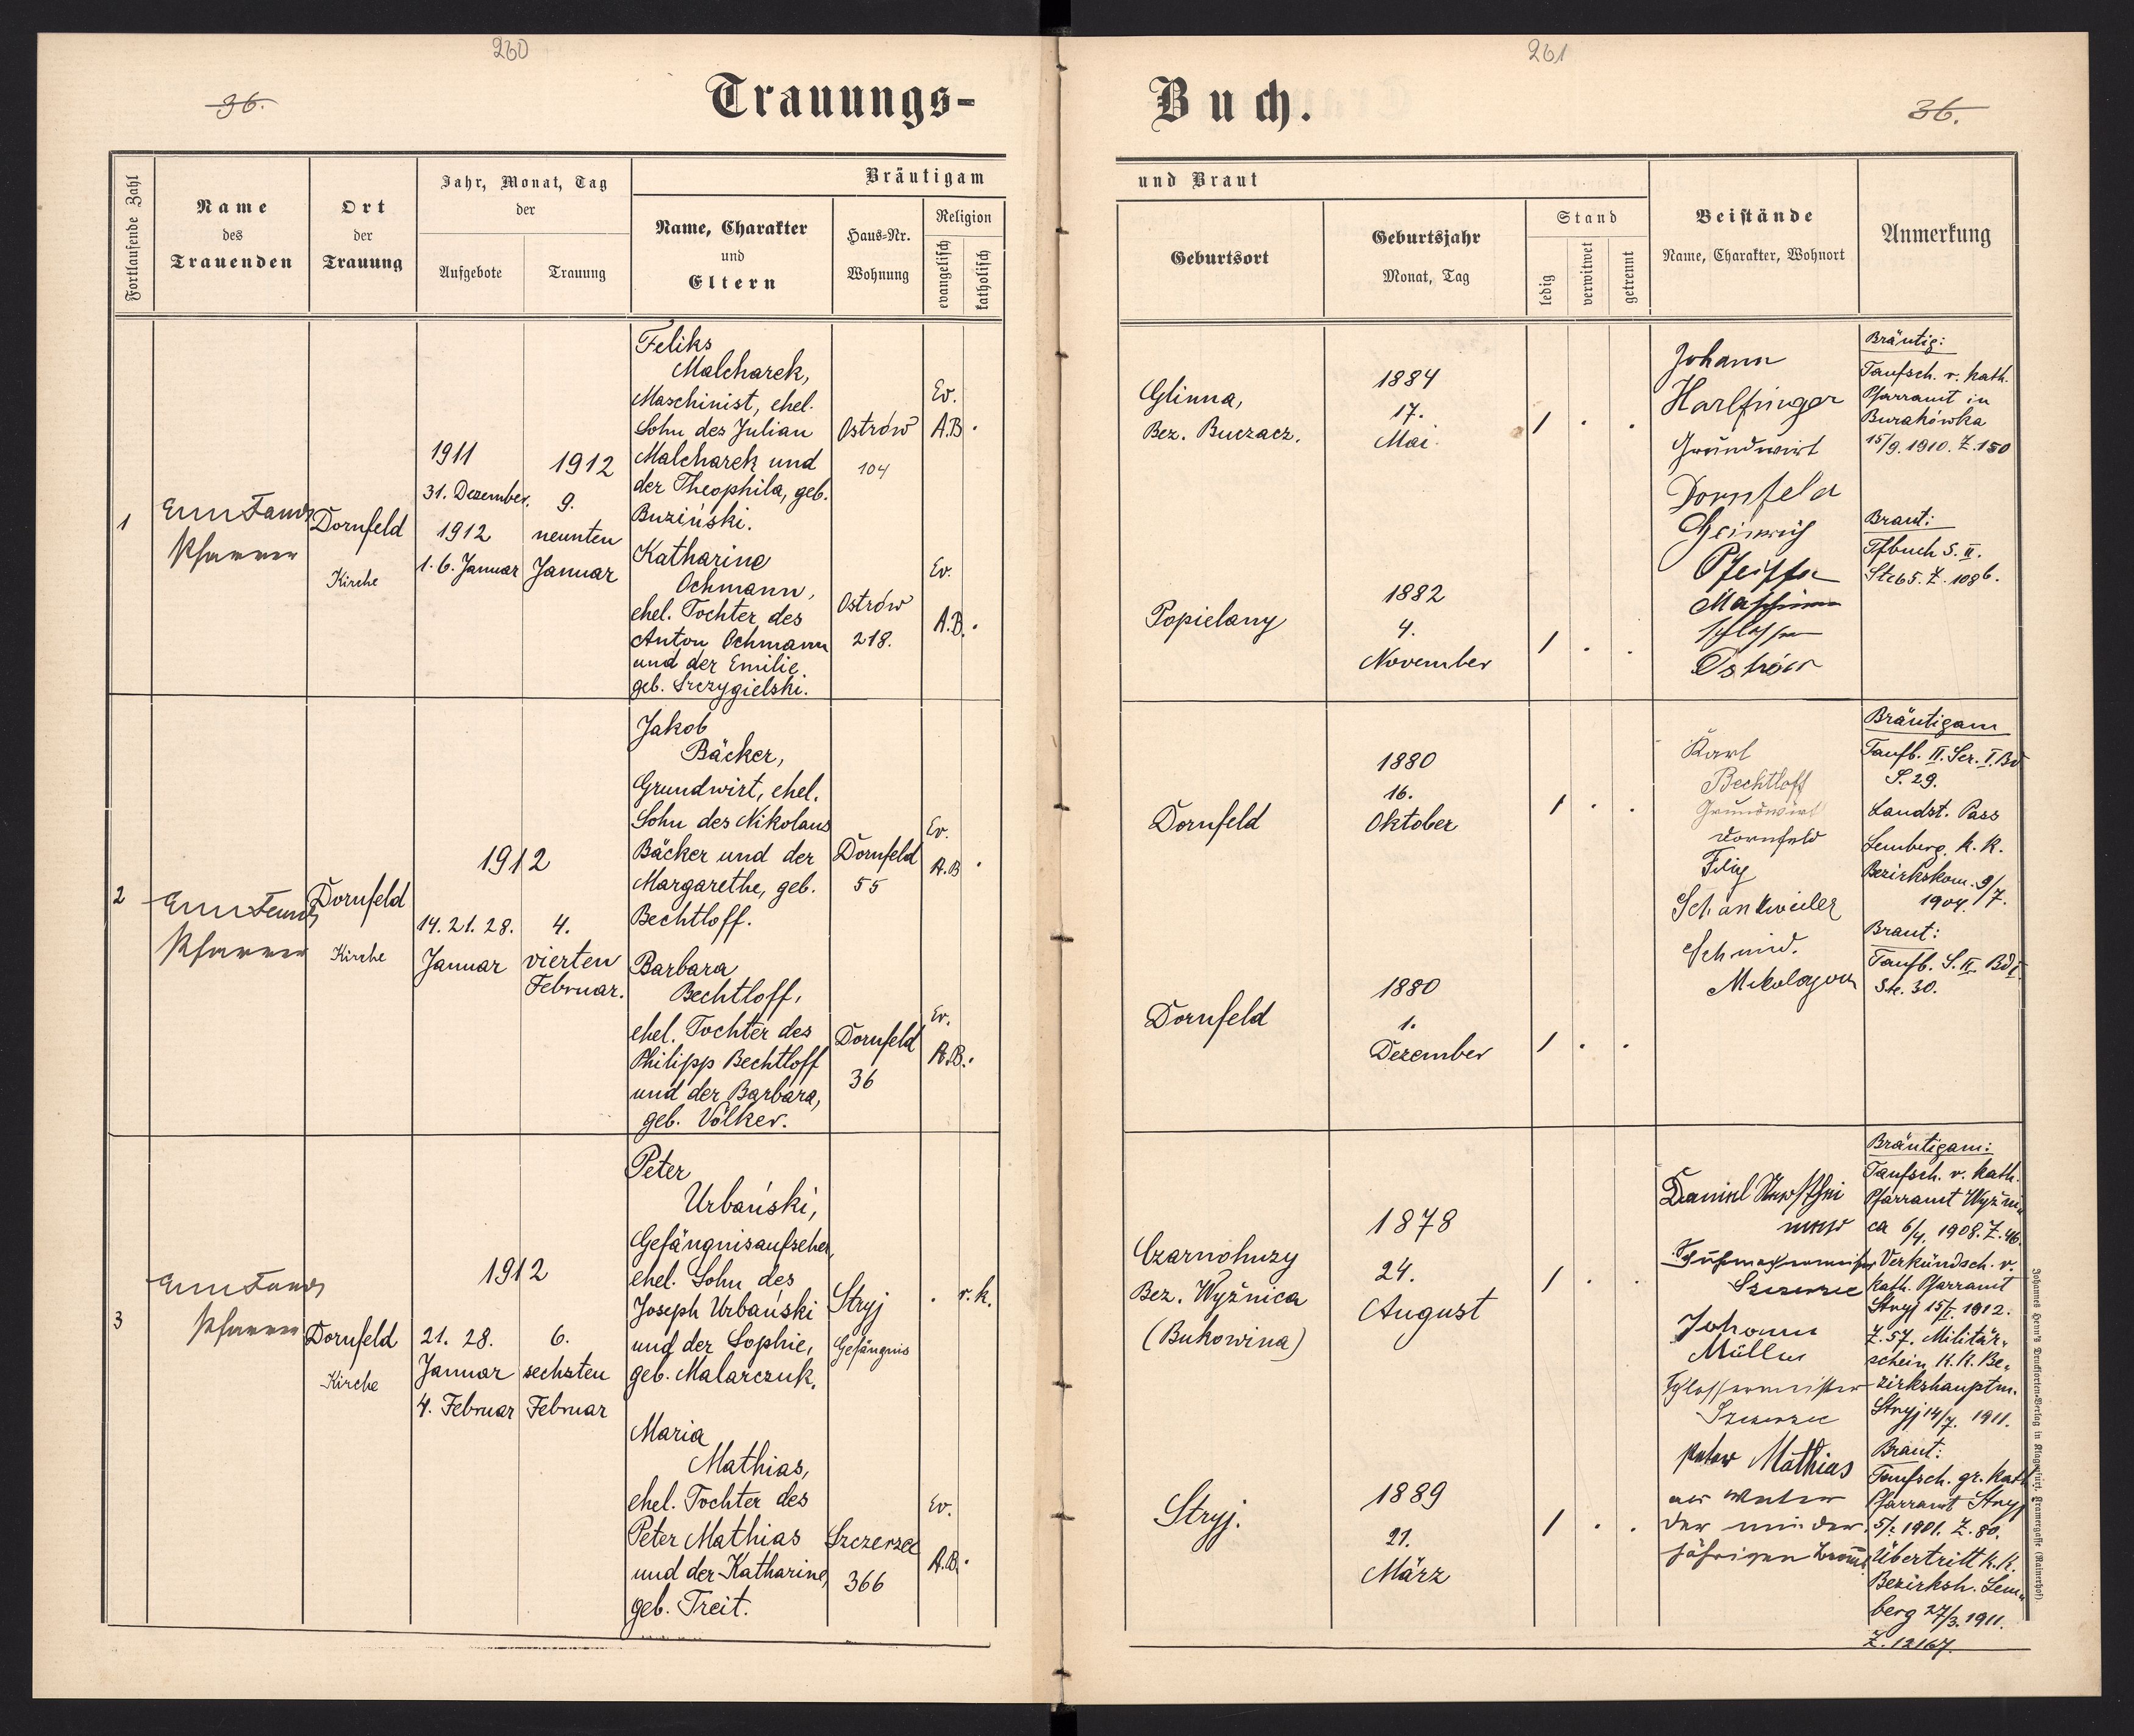 260
261
36.
Trauungs-
Buch.
36.
Fortlaufende Zahl
Name
des
Trauenden
Ort
der
Trauung
Jahr, Monat, Tag
der
Aufgebote
Trauung
Bräutigam
Name, Charakter
und
Eltern
Haus-Nr.
Wohnung
Religion
evangelisch
katholisch
und Braut
Geburtsort
Geburtsjahr
Monat, Tag
Stand
ledig
verwitwet
getrennt
Beistände
Name, Charakter, Wohnort
Anmerkung
1
Pfarrer
Dornfeld
Kirche
1911
31. Dezember.
1912
1. 6. Januar
1912
9.
neunten
Januar
Feliks
Malcharek,
Maschinist, ehel.
Sohn des Julian
Malcharek und
der Theophila, geb.
Buziński.
Ostrów
104
Ev.
A.B.
Katharina
Ochmann,
ehel. Tochter des
Anton Ochmann
und der Emilie
geb. Szczygielski.
Ostrów
218.
Ev.
A.B.
Glinna,
Bez. Buczacz.
1884
17.
Mai
Popielany
1882
4.
November
Johann
Harlfinger
Grundwirt
Dornfeld
Heinrich
Pfeiffer
Schlosser
Ostrów
Bräutig:
Taufsch. r. kath.
Pfarramt in
Burakówka
15/9. 1910. Z. 150
Braut:
Tfbuch S. II.
2
Pfarrer
Dornfeld
Kirche
1912
14. 21. 28.
Januar
4.
vierten
Februar.
Jakob
Bäcker,
Grundwirt, ehel.
Sohn des Nikolaus
Bäcker und der
Margarethe, geb.
Bechtloff.
Dornfeld
55
Ev.
A.B
Barbara
Bechtloff,
ehel. Tochter des
Philipp Bechtloff
und der Barbara,
geb. Völker.
Dornfeld
36
Ev.
A.B.
Dornfeld
1880
16.
Oktober
Dornfeld
1880
1.
Dezember
Karl
Bechtloff
Grundwirt
Dornfeld
Filip
Schankweiler
Schmid.
Mikolajow
Bräutigam
Taufb. II. Ser. I. Bd
S. 29.
Landst. Pass
Lemberg. k. k.
Bezirkskom. 9/7.
1904.
Braut:
Taufb. S. II. Bd I.
Ste. 30.
3
Pfarrer
Dornfeld
Kirche
1912
21. 28.
Januar
4. Februar
6.
sechsten
Februar
Peter
Urbański,
Gefängnisaufseher,
ehel. Sohn des
Joseph Urbański
und der Sophie,
geb. Malarczuk.
Stryj
Gefängnis
r. k.
Maria
Mathias,
ehel. Tochter des
Peter Mathias
und der Katharine,
geb. Treit.
Szczerzec
366
Ev.
A.B.
Czarnohuzy
Bez. Wyžnica
(Bukowina)
1878
24.
August
Stryj.
1889
21.
März
Daniel
Szczerzec
Johann
Müller
Schlossermeister
Szczerzec
Peter Mathias
als Vater
der minder-
jährigen Braut.
Bräutigam:
Taufsch. r. kath.
Pfarramt Wyžni-
ca 6/4. 1908. Z. 46.
Verkündsch. v.
kath. Pfarramt
Stryj 15/I. 1912.
Z. 57. Militär-
schein K. K. Be-
zirkshauptm.
Stryj 14/7. 1911.
Braut:
Taufsch. gr. kath
Pfarramt Stryj
1901. Z. 80.
Übertritt K. K.
Bezirksh. Lem-
berg 27/3. 1911.
Z. 12167.
Johannes Heyn's Drucksorten-Verlag in Klagenfurt, Kramergasse (Rainerhof).